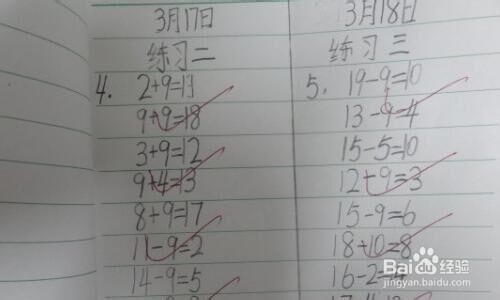 3月17日
练习二
4. 2+9=11
9+9=18
3+9=12
9+4=13
8+9=17
11-9=2
14-9=5
3月18日
练习三
5. 19-9=10
13-9=4
15-5=10
12-9=3
15-9=6
18-10=8
16-2
Bai度经验
jingyan.baidu.com